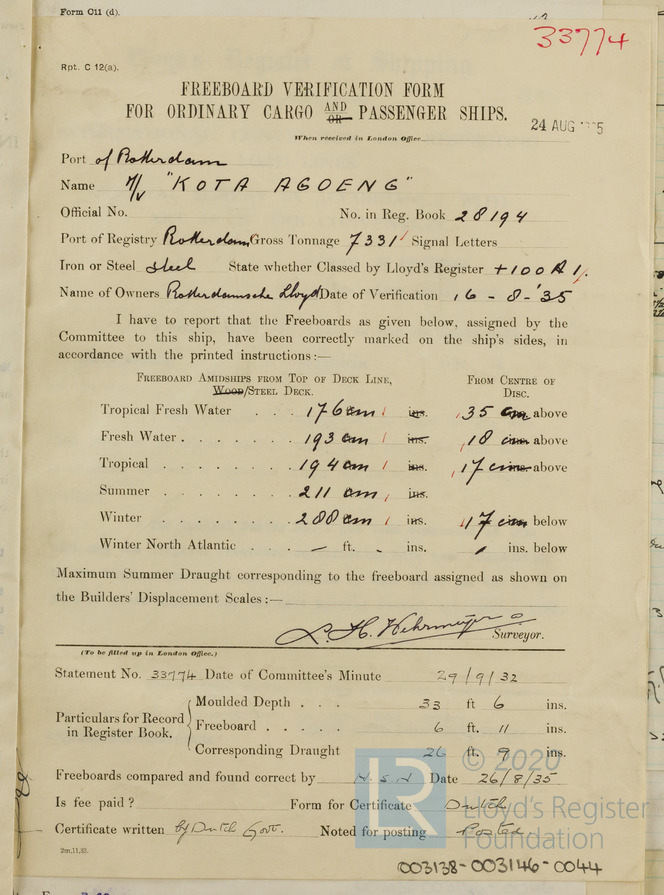 Form C11 (d).
33774
Rpt. C 12(a).
FREEBOARD VERIFICATION FORM
FOR ORDINARY CARGO AND OR PASSENGER SHIPS.
24 AUG 5
When received in London Office
Port of Rotterdam
Name M/V "KOTA AGOENG"
Official No. No. in Reg. Book 28194
Port of Registry Rotterdam Gross Tonnage 7331 Signal Letters
Iron or Steel steel State whether Classed by Lloyd's Register +100A1.
Name of Owners Rotterdamsche Lloyd Date of Verification 16-8-'35
I have to report that the Freeboards as given below, assigned by the
Committee to this ship, have been correctly marked on the ship's sides, in
accordance with the printed instructions:—
FREEBOARD AMIDSHIPS FROM TOP OF DECK LINE, FROM CENTRE OF
WOOD/STEEL DECK. DISC.
Tropical Fresh Water . . . 176 cm ins. 35 cm above
Fresh Water . . . . . . . 193 cm ins. 18 cm above
Tropical . . . . . . . . 194 cm ins. 17 cm ins. above
Summer . . . . . . . . 211 cm ins.
Winter . . . . . . . . 288 cm ins. 17 cm below
Winter North Atlantic . . . – ft. - ins. ins. below
Maximum Summer Draught corresponding to the freeboard assigned as shown on
the Builders' Displacement Scales:—
Surveyor.
(To be filled up in London Office.)
Statement No. 33774 Date of Committee's Minute 29/9/32
Particulars for Record in Register Book.
Moulded Depth . . . 33 ft 6 ins.
Freeboard . . . . . 6 ft. 11 ins.
Corresponding Draught 26 ft. 9 ins.
Freeboards compared and found correct by H.S.H Date 26/8/35
Is fee paid? Form for Certificate Dutch
Certificate written by Dutch Govt. Noted for posting Posted
2m,11,33.
LR © 2020
Lloyd's Register
Foundation
003138-003146-0044